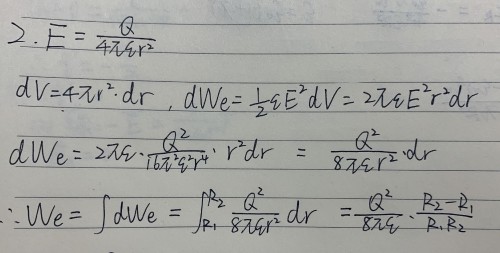 2. E = Q/4πεr²
dV=4πr²·dr , dWe=½εE²dV=2πεE²r²dr
dWe = 2πε·Q²/16π²ε²r⁴·r²dr = Q²/8πεr²·dr
∴We = ∫dWe = ∫_{R₁}^{R₂} Q²/8πεr² dr = Q²/8πε·R₂-R₁/R₁R₂